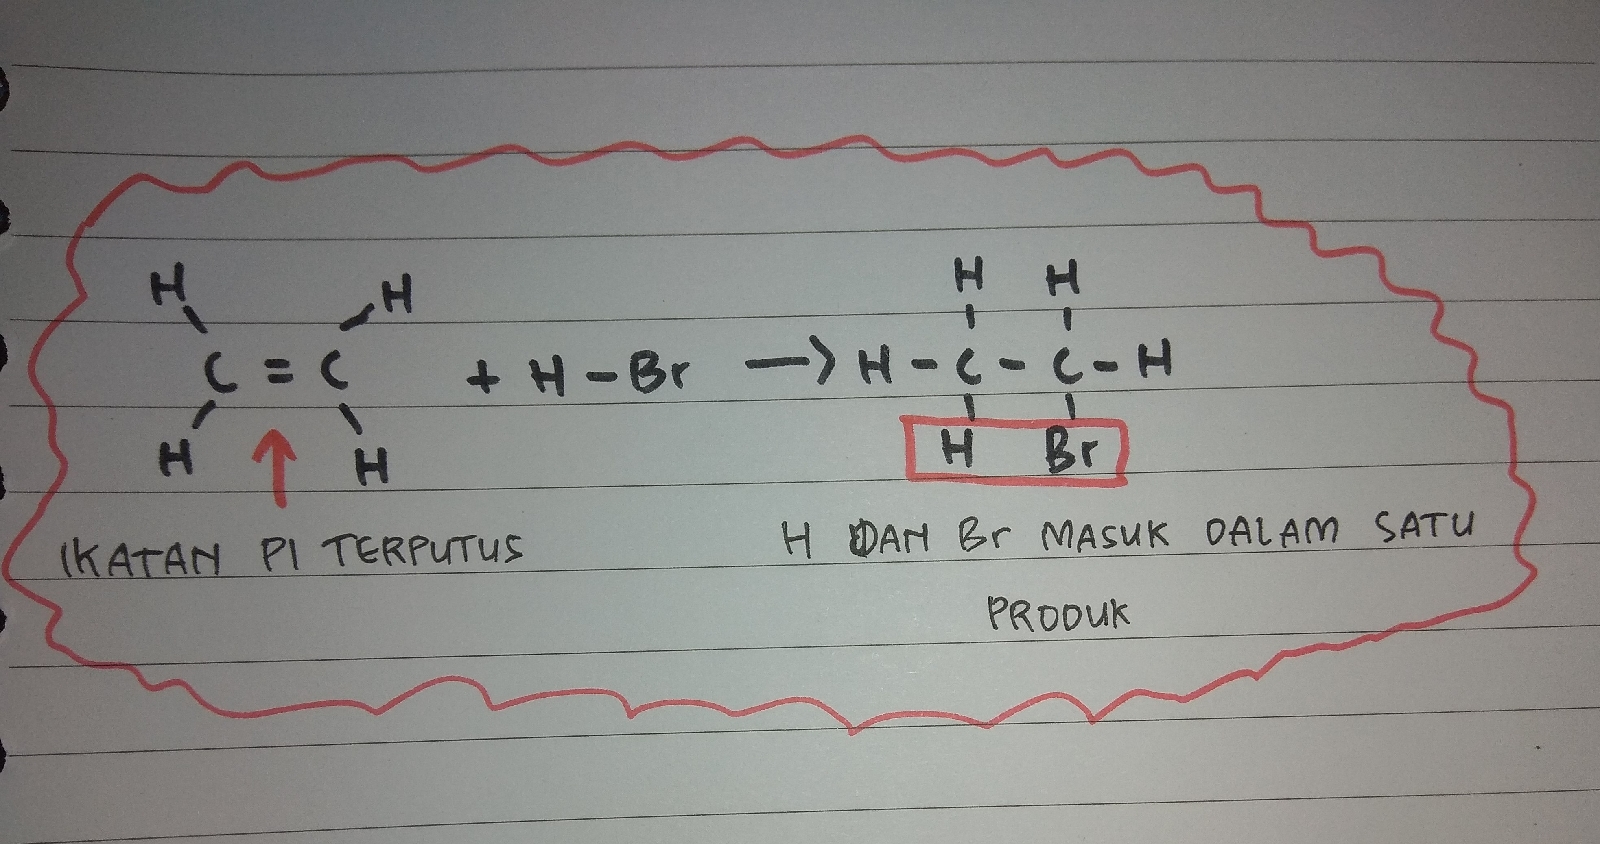 H H H H
C = C + H - Br -> H - C - C - H
H H H Br
IKATAN PI TERPUTUS
H DAN Br MASUK DALAM SATU
PRODUK